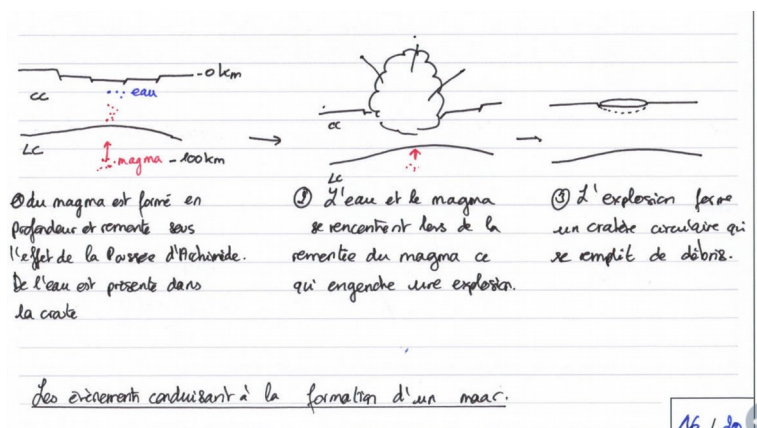 -0km
eau
CC
LC
magma -100km
CC
LC
① du magma est formé en
profondeur et remonte sous
l'effet de la Poussée d'Archimède.
De l'eau est présente dans
la croute
② L'eau et le magma
se rencontrent lors de la
remontée du magma ce
qui engendre une explosion.
③ L'explosion forme
un cratère circulaire qui
se remplit de débris.
Les évènements conduisant à la formation d'un maar.
16/20